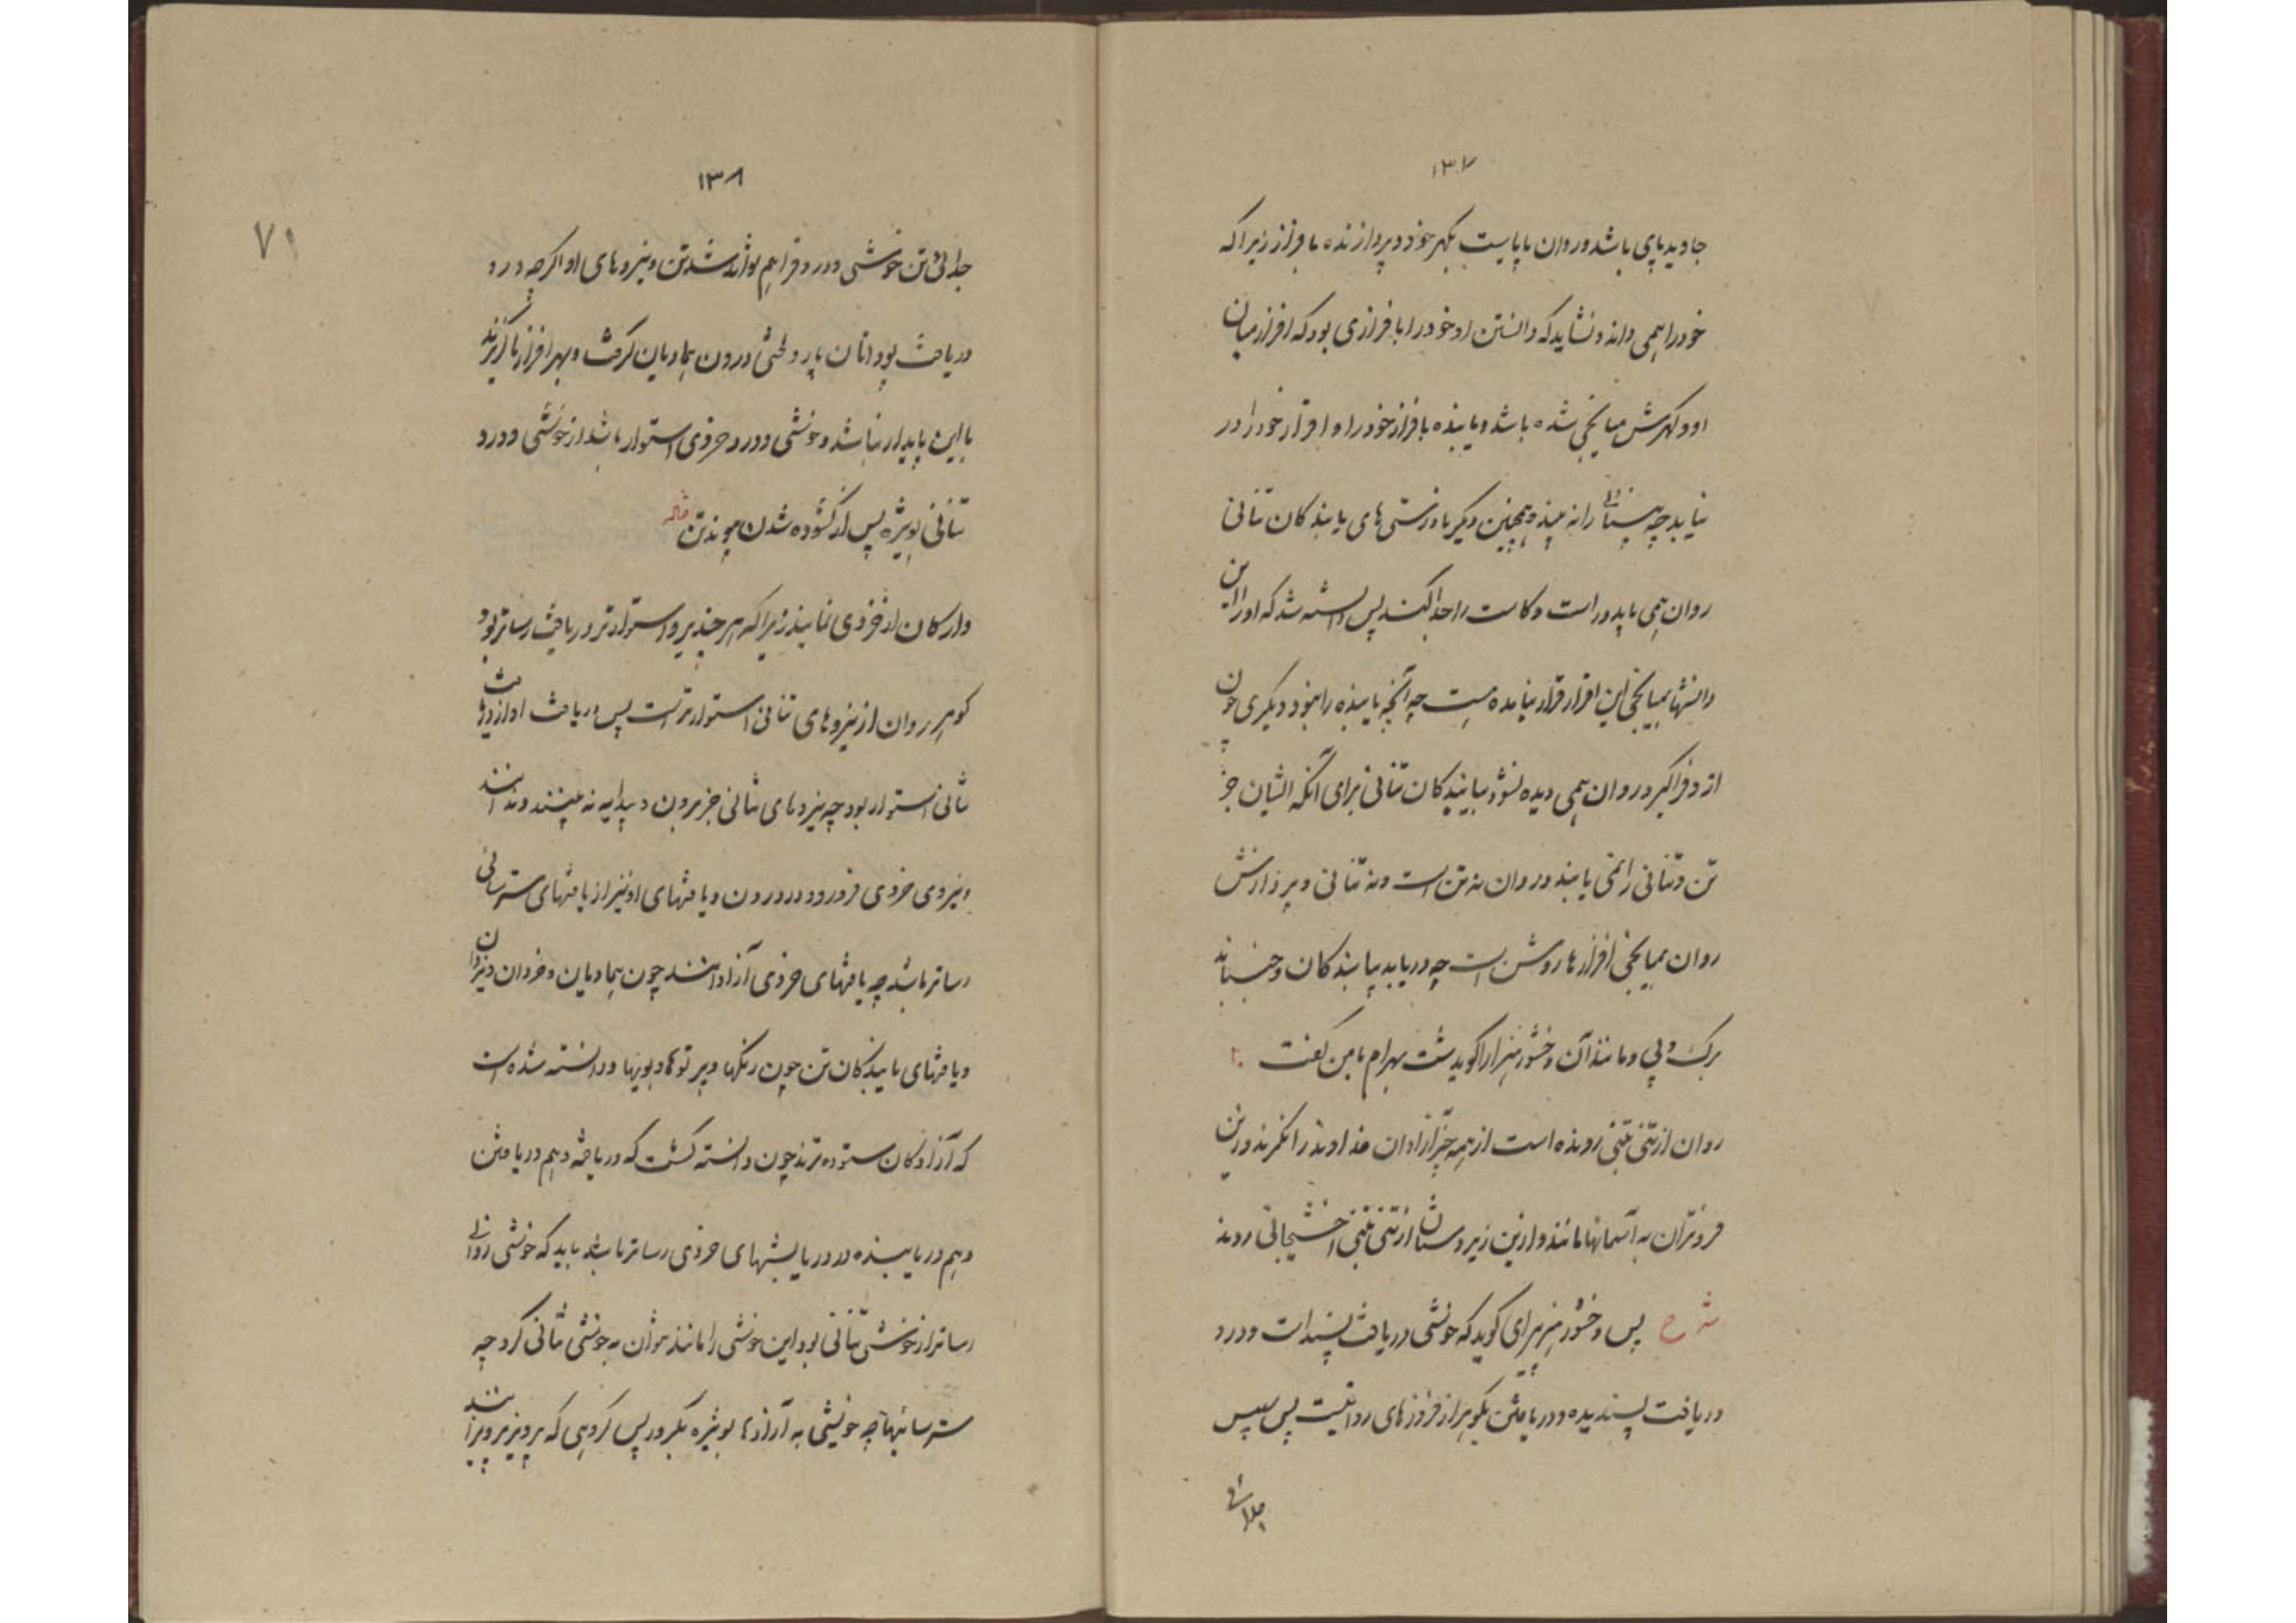 ۱۳۷
جاوید پای باشد و روان پاپایست بگهر خود و پردازنده بافراز زیرا که
خود را همی داند و نشاید که دانستن او خود را بافرازی بود که افراز میان
او و گهرش میانجی شده باشد و یابنده بافراز خود را و افراز خود را در
نیابد چه بینائی را نه بیند و همچنین دیگر باورستی های یابندکان تنانی
روان همی یابد و راست و کاست را جدا کند پس دانسته شد که او را این
دانشها بمیانجی این افراز قرار نیامده است چه آنچه یابنده را نبود دیگری چون
از و فراگیرد و روان همی دیده نشود بیابندکان تنانی برای آنکه ایشان جز
تن و تنانی را نمی یابند و روان نه تن است و نه تنانی و پردازش
روان بمیانجی افرازها روشن است چه دریابد بیابندکان و جنباند
برک و پی و مانند آن وخشور هیرا را گوید شت بهرام با من گفت
روان از تنی بتنی رونده است از همه چیز آزادان خداوند را نگرند و زین
فروتران به آسمانها مانند و ازین زیر دستان از تنی بتنی اخشیجانی روند
شرح پس وخشور گوید که خوشی دریافت پسند است و درد
دریافت نسپندیده و دریافتن بگوهر از فروزهای روانیست پس سپس
جدائی
۱۳۸
۷۱
جدائی تن خوشی و درد فراهم تواند شد تن و نیروهای او اگر چه در
دریافت بود اتان پاره لختی درون همادیان گرفت و بهر افراز ناگزیرند
با این پایدار نباشد و خوشی و درد خردی استوار باشد از خوشی و درد
تنانی بویژه پس از گشوده شدن پیوند تن
وارسکان از خردی نمایند زیرا که هر چند نیرو استوارتر دریافت رساتر بود
گوهر روان از نیروهای تنانی استوارتر است پس دریافت او از دریافتهای
تنانی استوار بود چه نیروهای تنانی جز برون و پدایه نه بینند و ندانند
و نیروی خردی فرو رود در درون و یافتهای او نیز از یافتهای سترسائی
رساتر باشد چه یافتهای خردی آزادانند چون همادیان و خردان و یزدان
و یافتهای یابندکان تن چون رنگها و پرتوها و بویها و دانسته شده است
که آزادکان ستوده ترند چون دانسته گشت که دریافته و هم دریافتن
و هم دریابنده در دریابشهای خردی رساتر باشد باید که خوشی روانی
رساتر از خوشی تنانی بود این خوشی را مانند نتوان به خوشی تنانی کرد چه
سترسائیها چه خویشی به آزادها بویژه بکرور پس گروهی که